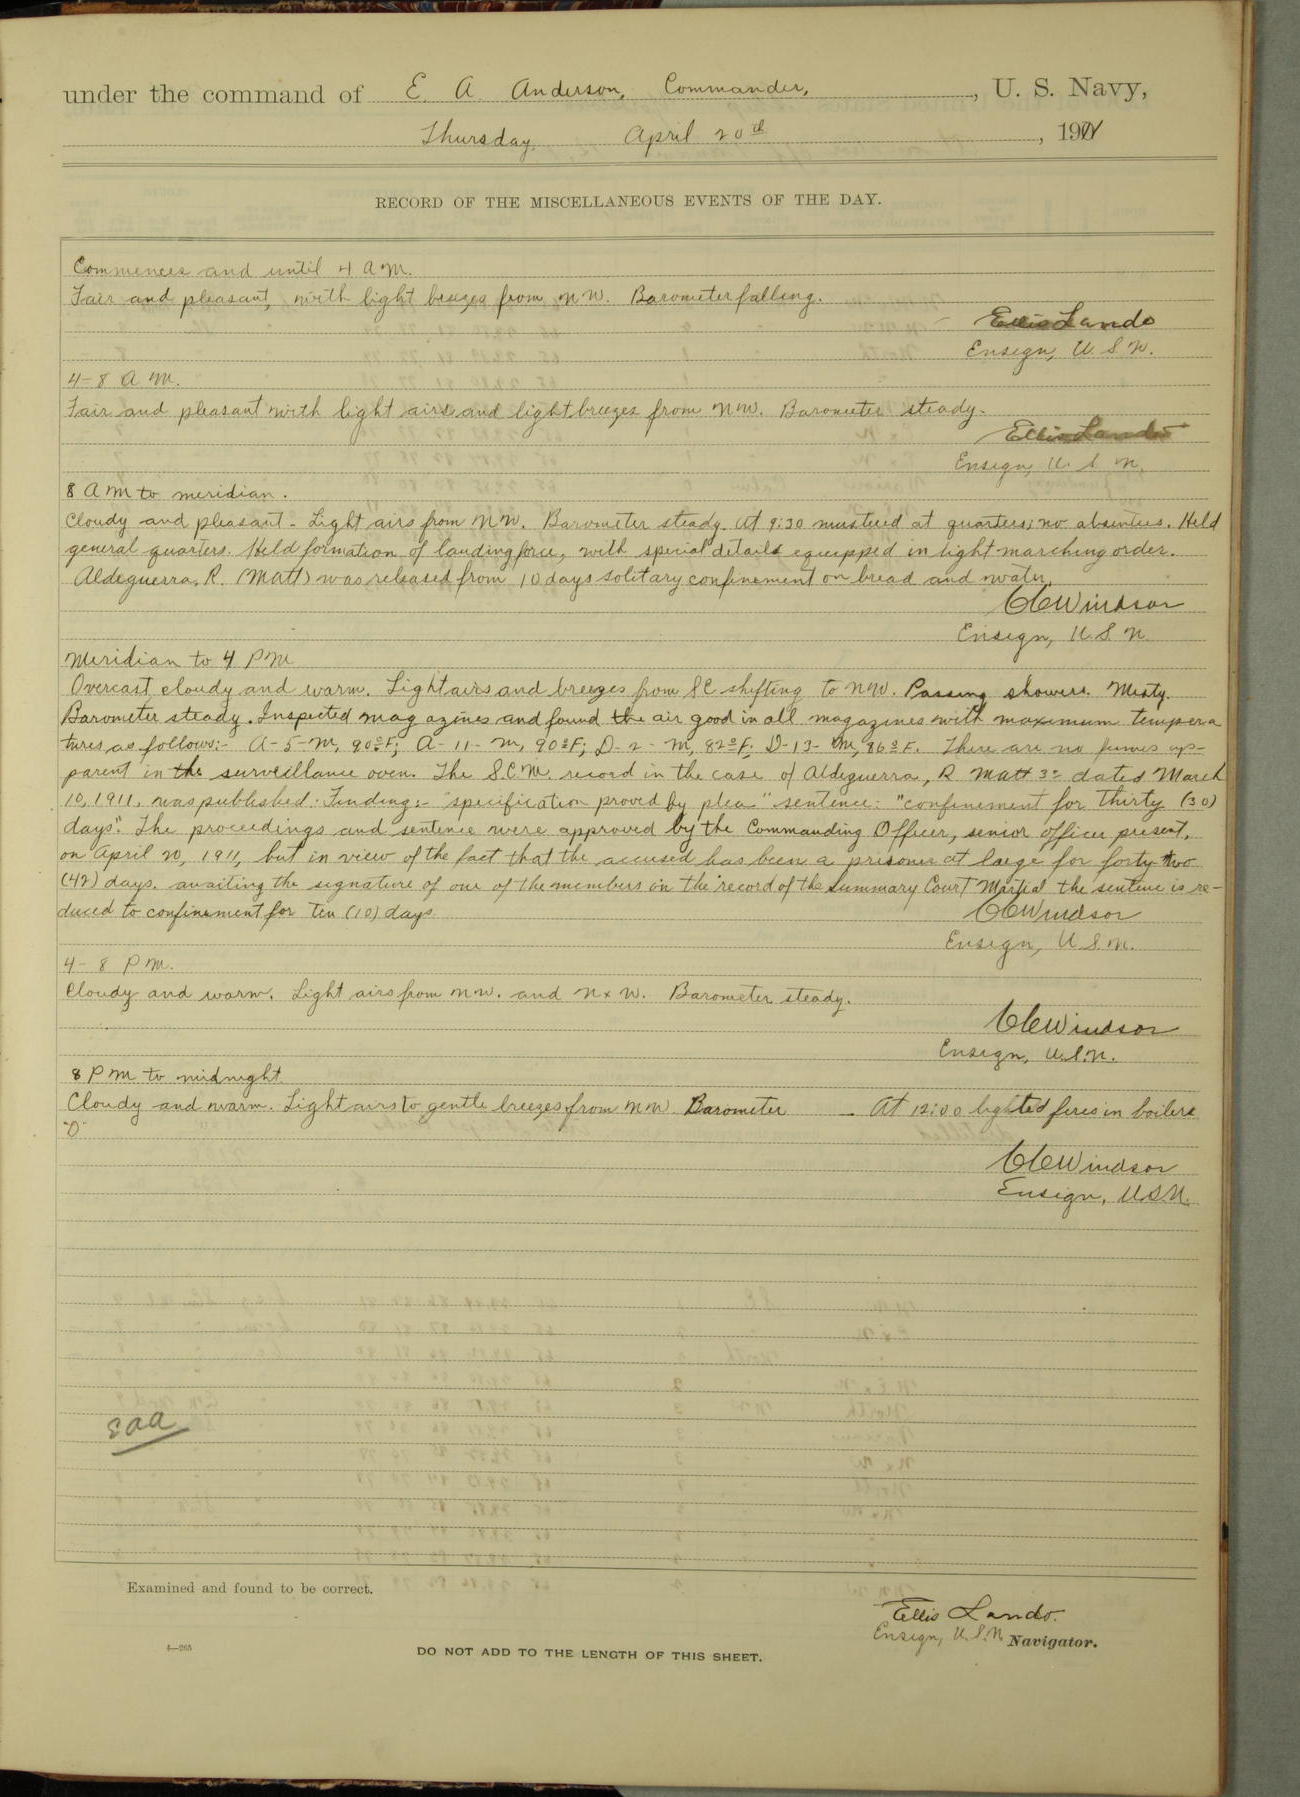 under the command of E. A. Anderson, Commander, , U. S. Navy,
Thursday, April 20th , 1911
RECORD OF THE MISCELLANEOUS EVENTS OF THE DAY.
Commences and until 4 A.M.
Fair and pleasant, with light breezes from NW. Barometer falling.
Ellis Lando
Ensign, U. S. N.
4-8 A M.
Fair and pleasant with light airs and light breezes from NW. Barometer steady.
Ellis Lando
Ensign, U. S. N.
8 A M to meridian.
Cloudy and pleasant - Light airs from NW. Barometer steady. At 9:30 mustered at quarters; no absentees. Held
general quarters. Held formation of landing force, with special details equipped in light marching order.
Aldeguerra, R. (Matt) was released from 10 days solitary confinement on bread and water.
CCWindsor
Ensign, U. S. N.
Meridian to 4 P M
Overcast, cloudy and warm. Light airs and breezes from SE shifting to NW. Passing showers. Misty.
Barometer steady. Inspected magazines and found the air good in all magazines with maximum tempera
tures as follows:- A-5-M, 90°F; A-11-M, 90°F; D-2-M, 82°F; D-13-M, 86°F. There are no fumes ap-
parent in the surveillance oven. The S.C.M. record in the case of Aldeguerra, R. Matt 3c dated March
10, 1911, was published: Finding:- "specification proved by plea" sentence: "confinement for Thirty (30)
days". The proceedings and sentence were approved by the Commanding Officer, senior officer present,
on April 20, 1911, but in view of the fact that the accused has been a prisoner at large for forty two
(42) days, awaiting the signature of one of the members on the record of the Summary Court Martial the sentence is re-
duced to confinement for Ten (10) days.
CCWindsor
Ensign, U S. N.
4-8 P M.
Cloudy and warm. Light airs from NW. and N x W. Barometer steady.
CCWindsor
Ensign, U.S.N.
8 P M to midnight
Cloudy and warm. Light airs to gentle breezes from NW Barometer - At 12:00 lighted fires in boilers
"D"
CCWindsor
Ensign, U.S.N.
EAA
Examined and found to be correct.
Ellis Lando.
Ensign, U.S.N. Navigator.
4—265
DO NOT ADD TO THE LENGTH OF THIS SHEET.